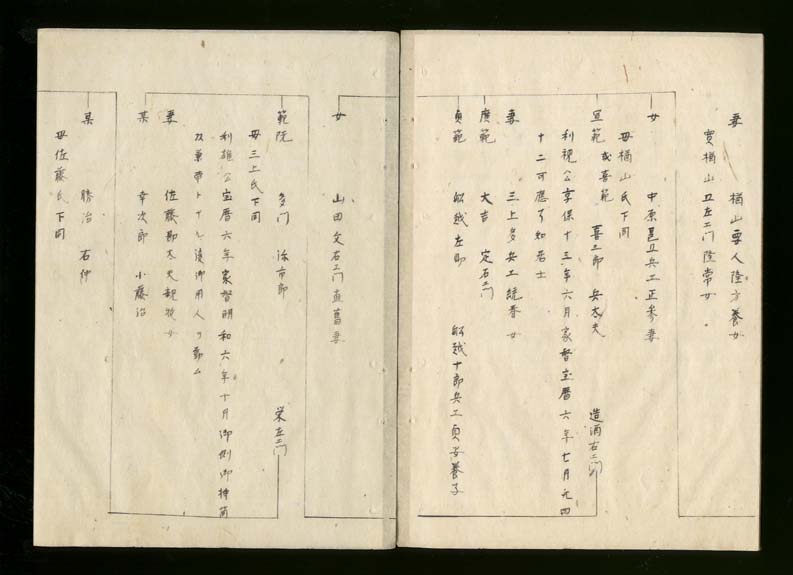 妻 楢山要人隆方養女
實楢山五左エ門隆常女
女 中原邑五兵エ正参妻
母楢山氏下同
宣範 或喜範 喜三郎 兵太夫 造酒右エ門
利視公享保十三年六月家督宝暦六年七月元四
十二可應了知若士
妻 三上多兵エ統春女
廣範 大吉 定右エ門
貞範 船越左助 船越十郎兵エ貞安養子
女 山田文右エ門直喜妻
範院 多門 治市郎 栄左エ門
母三上氏下同
利雄公宝暦六年家督明和六年十月御側御持筒
双兼帯トナル後御用人ヲ勤ム
妻 佐藤勘太夫親牧女
某 幸次郎 小藤治
某 勝治 右仲
母佐藤氏下同